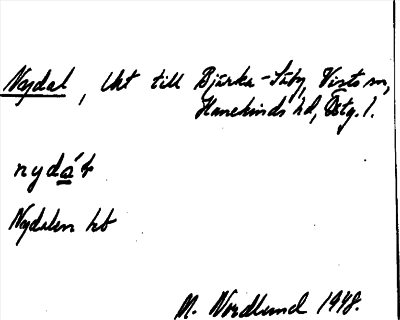 Nydal, lht till Bjärka-Säby, Vists sn,
Hanekinds hd, Östg. l.
nydáɫ
Nydalen hb
M. Nordlund 1948.